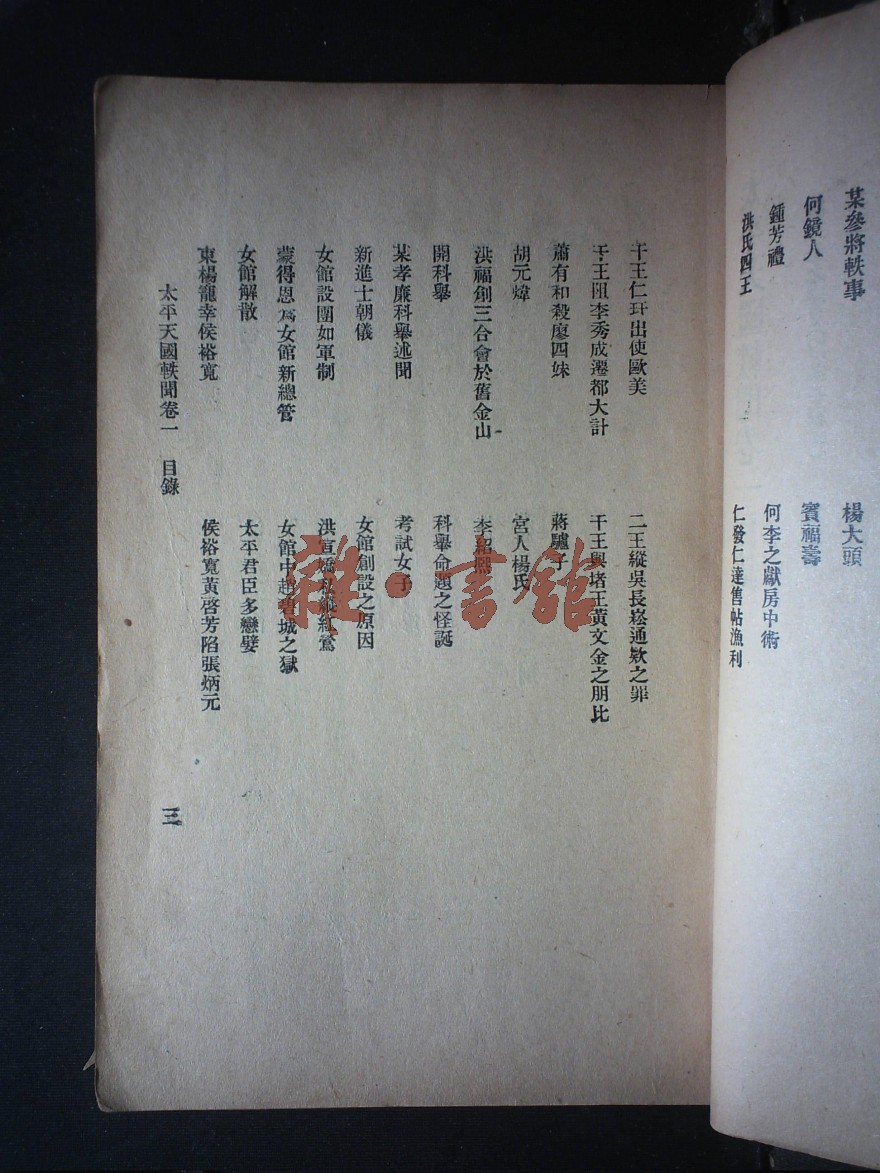 某參將軼事
楊大頭
何鏡人
賓福壽
鍾芳禮
何李之獻房中術
洪氏四王
仁發仁達售帖漁利
干王仁玕出使歐美
二王縱吳長崧通欵之罪
干王阻李秀成遷都大計
干王與堵王黃文金之朋比
蕭有和殺廖四妹
蔣驢子
胡元煒
宮人楊氏
洪福創三合會於舊金山
李紹熙
開科舉
科舉命題之怪誕
某孝廉科舉述聞
考試女子
新進士朝儀
女館創設之原因
女館設團如軍制
洪宣嬌私縱紅鸞
蒙得恩爲女館新總管
女館中趙碧城之獄
女館解散
太平君臣多戀嬖
東楊寵幸侯裕寬
侯裕寬黃啓芳陷張炳元
太平天國軼聞卷一 目錄
三
雜·書館